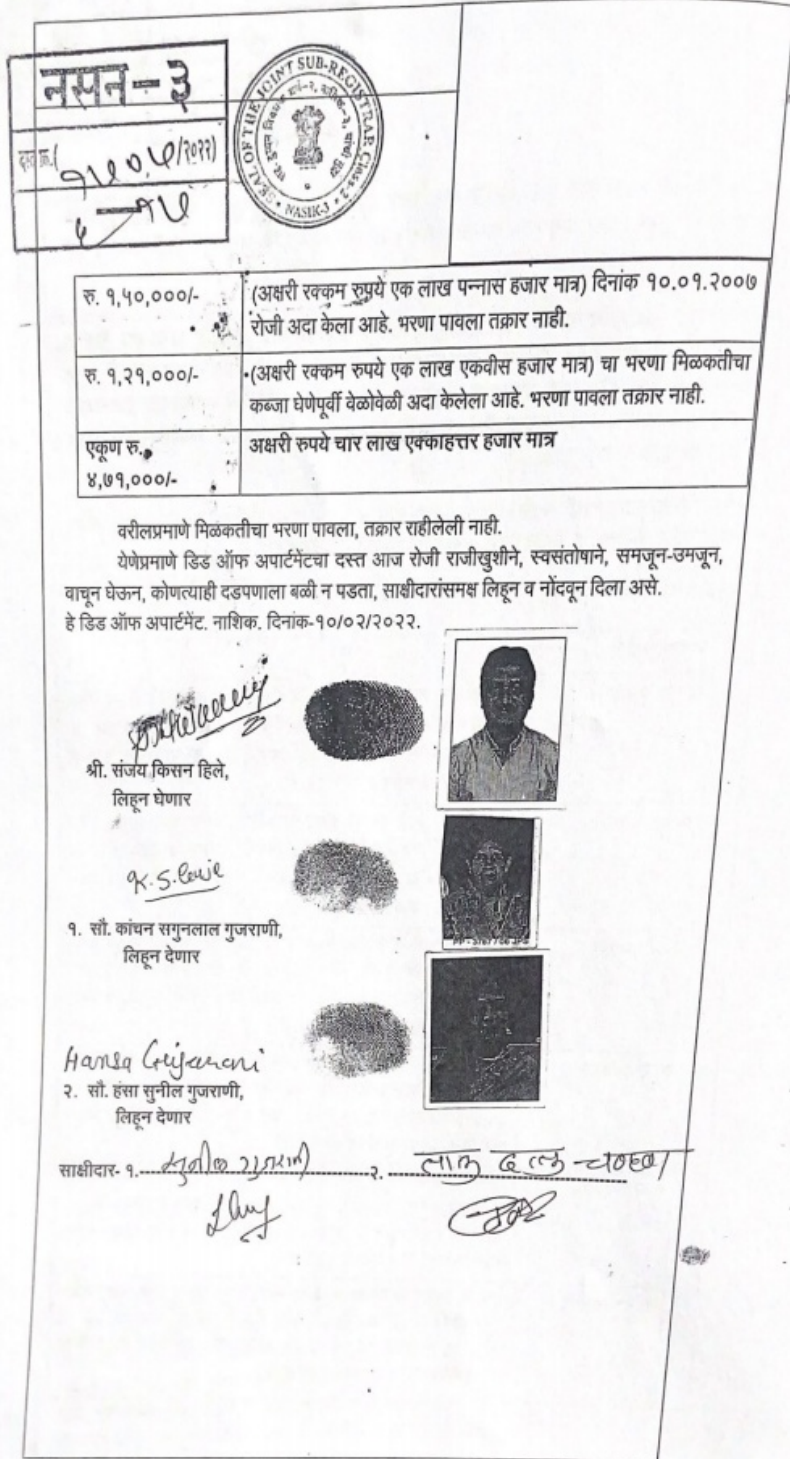 नसन-३
दस्त क्र.( १५०५/२०२२)
५ — १५
SEAL OF THE JOINT SUB-REGISTRAR Class-2
NASIK-3
रु. १,५०,०००/- (अक्षरी रक्कम रुपये एक लाख पन्नास हजार मात्र) दिनांक १०.०१.२००७
रोजी अदा केला आहे. भरणा पावला तक्रार नाही.
रु. १,२१,०००/- (अक्षरी रक्कम रुपये एक लाख एकवीस हजार मात्र) चा भरणा मिळकतीचा
कब्जा घेणेपूर्वी वेळोवेळी अदा केलेला आहे. भरणा पावला तक्रार नाही.
एकूण रु. अक्षरी रुपये चार लाख एक्काहत्तर हजार मात्र
४,७१,०००/-
वरीलप्रमाणे मिळकतीचा भरणा पावला, तक्रार राहीलेली नाही.
येणेप्रमाणे डिड ऑफ अपार्टमेंटचा दस्त आज रोजी राजीखुशीने, स्वसंतोषाने, समजून-उमजून,
वाचून घेऊन, कोणत्याही दडपणाला बळी न पडता, साक्षीदारांसमक्ष लिहून व नोंदवून दिला असे.
हे डिड ऑफ अपार्टमेंट. नाशिक. दिनांक-१०/०२/२०२२.
श्री. संजय किसन हिले,
लिहून घेणार
K.S.
१. सौ. कांचन सगुनलाल गुजराणी,
लिहून देणार
Hansa Gujarani
२. सौ. हंसा सुनील गुजराणी,
लिहून देणार
साक्षीदार- १. सुनील गुजराणी २.